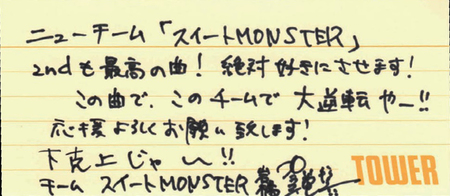 ニューチーム「スイートMONSTER」
2ndも最高の曲！絶対好きにさせます！
この曲で、このチームで大逆転やー!!
応援よろしくお願い致します！
下克上じゃ〜!!
チーム スイートMONSTER
TOWER